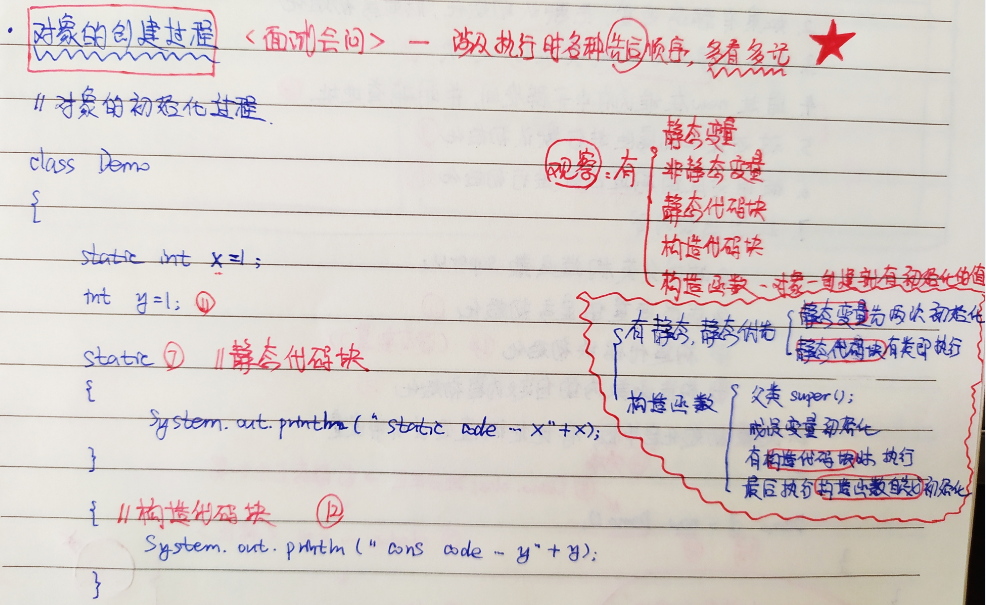 · 对象的创建过程 <面试会问> — 涉及执行时各种先后顺序, 多看多记
// 对象的初始化过程.
class Demo
{
static int x=1;
int y=1; ⑪
static ⑦ //静态代码块
{
System.out.println("static code -- x"+x);
}
{ //构造代码块 ⑫
System.out.println("cons code -- y"+y);
}
观察: 有
静态变量
非静态变量
静态代码块
构造代码块
构造函数 - 对象一创建就有初始化的值
有静态, 静态优先
静态变量先两次初始化
静态代码块有类即执行
构造函数
父类 super();
成员变量初始化
有构造代码块 执行
最后执行构造函数 初始化